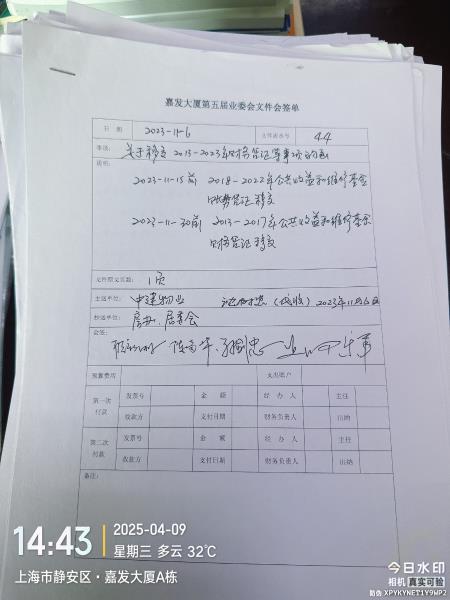 嘉发大厦第五届业委会文件会签单
日 期 2023-11-6 文件流水号 44
事项: 关于移交2013-2023年财务凭证等事项的函
说明:
2023-11-15前 2018-2022年公共收益和维修基金
财务凭证移交
2023-11-30前 2013-2017年公共收益和维修基金
财务凭证移交
文件原文页数: 1页
主送单位: 中建物业 (接收) 2023年11月6日
抄送单位: 房办、居委会
会签:
预算费用 支出账户
第一次付款 发票号 金 额 经 办 人 主任
收款方 支付日期 财务负责人 出纳
第二次付款 发票号 金 额 经 办 人 主任
收款方 支付日期 财务负责人 出纳
备注:
14:43 2025-04-09
星期三 多云 32℃
上海市静安区·嘉发大厦A栋
今日水印
相机 真实可验
防伪 XPYKYNET1Y9WP2